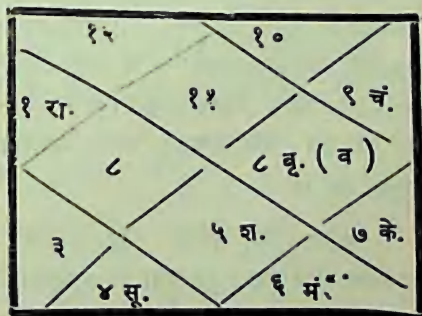 १२ १०
१ रा. ११ ९ चं.
८ ८ वृ. ( व )
३ ५ श. ७ के.
४ सू. ६ मं.